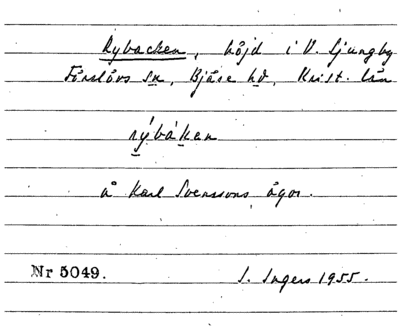 Rybacken, höjd i V. Ljungby
Förslövs sn, Bjäre hd, Krist. län
rýbàken
å Karl Svenssons ägor.
Nr 5049. I. Ingers 1955.